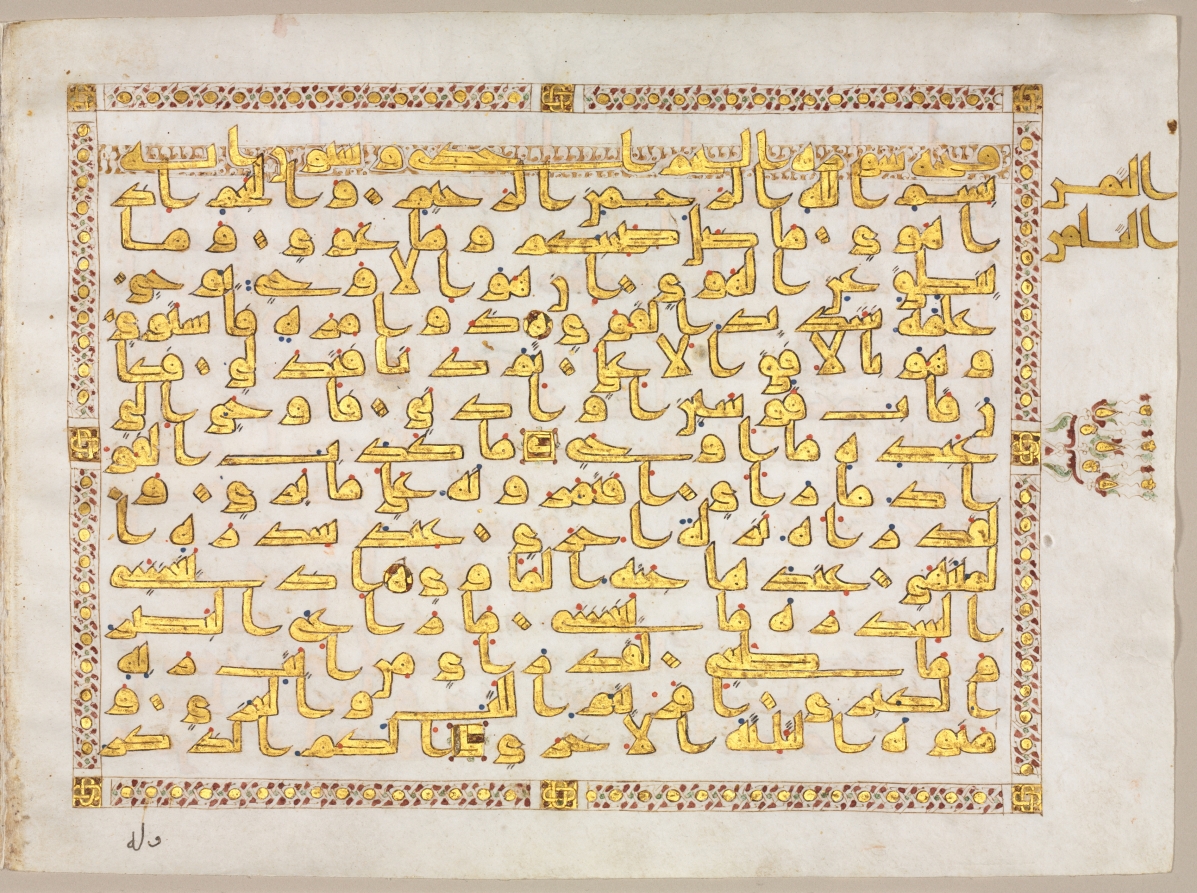 سوره النجم احدى وستون ايه
بسم الله الرحمن الرحيم والنجم اذ
ا هوى ما ضل صاحبكم وما غوى وما
ينطق عن الهوى ان هو الا وحى يوحى
علمه شديد القوى ذو مره فاستوى
وهو بالافق الاعلى ثم دنا فتدلى فكا
ن قاب قوسين او ادنى فاوحى الى
عبده ما اوحى ما كذب الفو
اد ما راى افتمرونه على ما يرى و
لقد راه نزله اخرى عند سدره ا
لمنتهى عندها جنه الماوى اذ يغشى
السدره ما يغشى ما زاغ البصر
وما طغى لقد راى من ايت ربه
الكبرى افريتم اللت والعزى و
منوه الثلثه الاخرى الكم الذكر
وله